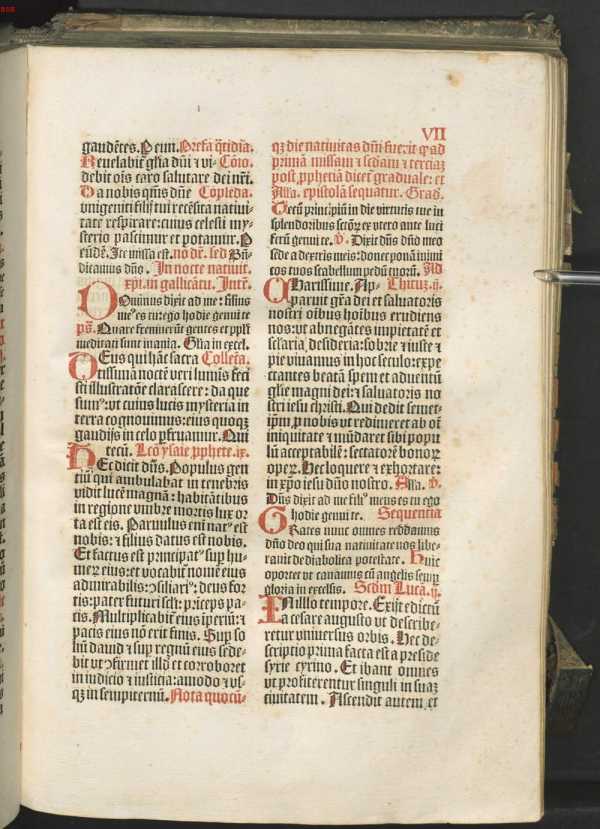 VII
gaudētes. P eūm. Prefa. q̄tidia.
Reuelabit᷑ gl̄ia dn̄i ⁊ vi- Cōīo.
debit oīs caro salutare dei nr̄i.
Da nobis q̄s dn̄e Copleda.
vnigeniti filij tui recēsita natiui-
tate respirare: cuius celesti my-
sterio pascimur et potamur. P
eūdē. Ite missa est. no dr̄. sed Bn̄-
dicamus dn̄o. In nocte natiuit.
xpi. in gallicātu. Intr̄.
Dominus dixit ad me: filius
me⁹ es tu ego hodie genui te
ps̄. Quare fremuerūt gentes et ppl̄i
meditati sunt inania. Gl̄ia in excel.
Deus qui hāc sacra Collēta.
tissimā noctē veri lumīs feci
sti illustratōe clarascere: da que
sum⁹: vt cuius lucis mysteria in
terra cognouimus: eius quoqꝫ
gaudijs in celo p̄fruamur. Qui
tecū. Lcō ysaie. pphete. ix.
Hec dicit dn̄s. Populus gen
tiū qui ambulabat in tenebris
vidit lucē magnā: habitātibus
in regione vmbre mortis lux or
ta est eis. Paruulus em̄ nat⁹ est
nobis: ⁊ filius datus est nobis.
Et factus est principat⁹ sup hu-
meꝝ eius: et vocabit᷑ nomē eius
admirabilis: ↄsiliari⁹: deus for
tis: pater futuri scl̄i: prīceps pa-
cis. Multiplicabit᷑ eius iperiū: ⁊
pacis eius nō erit finis. Sup so
liū dauid ⁊ sup regnū eius sede-
bit vt ↄfirmet illd ⁊ corroboret
in iudicio ⁊ iusticia: amodo ⁊ vs-
qꝫ in sempiternū. Nota quocū-
qꝫ die natiuitas dn̄i fuerit qᵈ ad
primā missam ⁊ scd̄am ⁊ terciaꝫ
post pphetiā dicet᷑ graduale: et
Alla. epistolā sequatur. Grad̄.
Tecū principiū in die virtutis tue in
splendoribus scōꝝ ex vtero ante luci
ferū genui te. v̄. Dixit dn̄s dn̄o meo
sede a dextris meis: donec ponā inimi
cos tuos scabellum pedū tuorū. Ad
Charissime. Ap- Thituꝫ. ij.
paruit gr̄a dei et saluatoris
nostri oībus hoībus erudiens
nos: vt abnegātes impietatē et
scl̄aria desideria: sobrie ⁊ iuste ⁊
pie viuamus in hoc seculo: expe
ctantes beatā spem et aduentū
gl̄ie magni dei: ⁊ saluatoris no
stri iesu christi. Qui dedit semet-
ip̄m p nobis vt redimeret ab oī
iniquitate ⁊ mūdaret sibi popu
lū acceptabilē: sectatorē bonoꝝ
opeꝝ. Hec loquere ⁊ exhortare:
in xp̄o iesu dn̄o nostro. Alla. v̄.
Dn̄s dixit ad me fili⁹ meus es tu ego
hodie genui te. Sequentia
Grates nunc omnes reddamus
dn̄o deo qui sua natiuitate nos libe-
rauit de diabolica potestate. Huic
oportet vt canamus cū angelis semp
gloria in excelsis. Scd̄m Lucā. ij.
In illo tempore. Exijt edictū
a cesare augusto vt describe-
retur vniuersus orbis. Hec de-
scriptio prima facta est a preside
syrie cyrino. Et ibant omnes
vt profiterentur singuli in suaꝫ
ciuitatem. Ascendit autem et